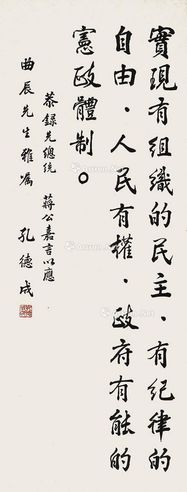 實現有組織的民主．有紀律的
自由．人民有權．政府有能的
憲政體制。
恭錄先總統　蔣公嘉言以應
曲辰先生雅屬
孔德成